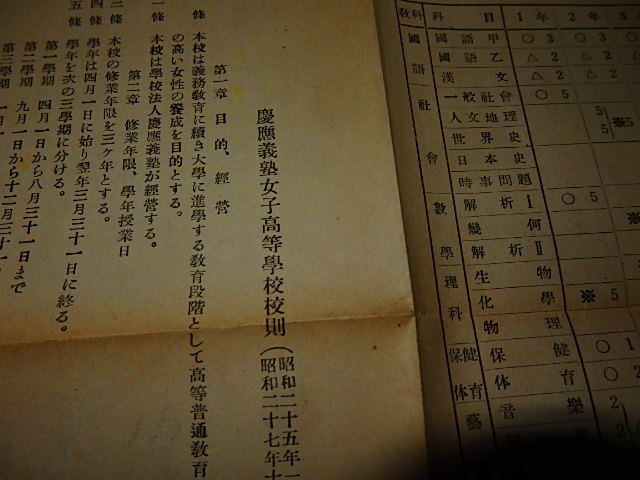 慶應義塾女子高等學校校則(昭和二十五年一
昭和二十七年十
第一章 目的、經營
條 本校は義務教育に續き大學に進學する教育段階として高等普通教育
の高い女性の養成を目的とする。
條 本校は學校法人慶應義塾が經營する。
第二章 修業年限、學年授業日
三條 本校の修業年限を三ケ年とする。
四條 學年は四月一日に始り翌年三月三十一日に終る。
五條 學年を次の三學期に分ける。
第一學期 四月一日から八月三十一日まで
第二學期 九月一日から十二月三十一
第三學期 一月一
教科 科目 1年 2年 3
國語 國語甲 ○3 ○3 ○
國語乙 △2 △2 △
漢文 △2 △2 △
社會 一般社會 ○5
人文地理 5 ※5
世界史 5
日本史
時事問題
數學 解析Ⅰ ○5
幾何 ※
解析Ⅱ
理科 生物
化學 ※5
物理
保健體育 保健 ○1
體育 ○2
藝 音樂 2